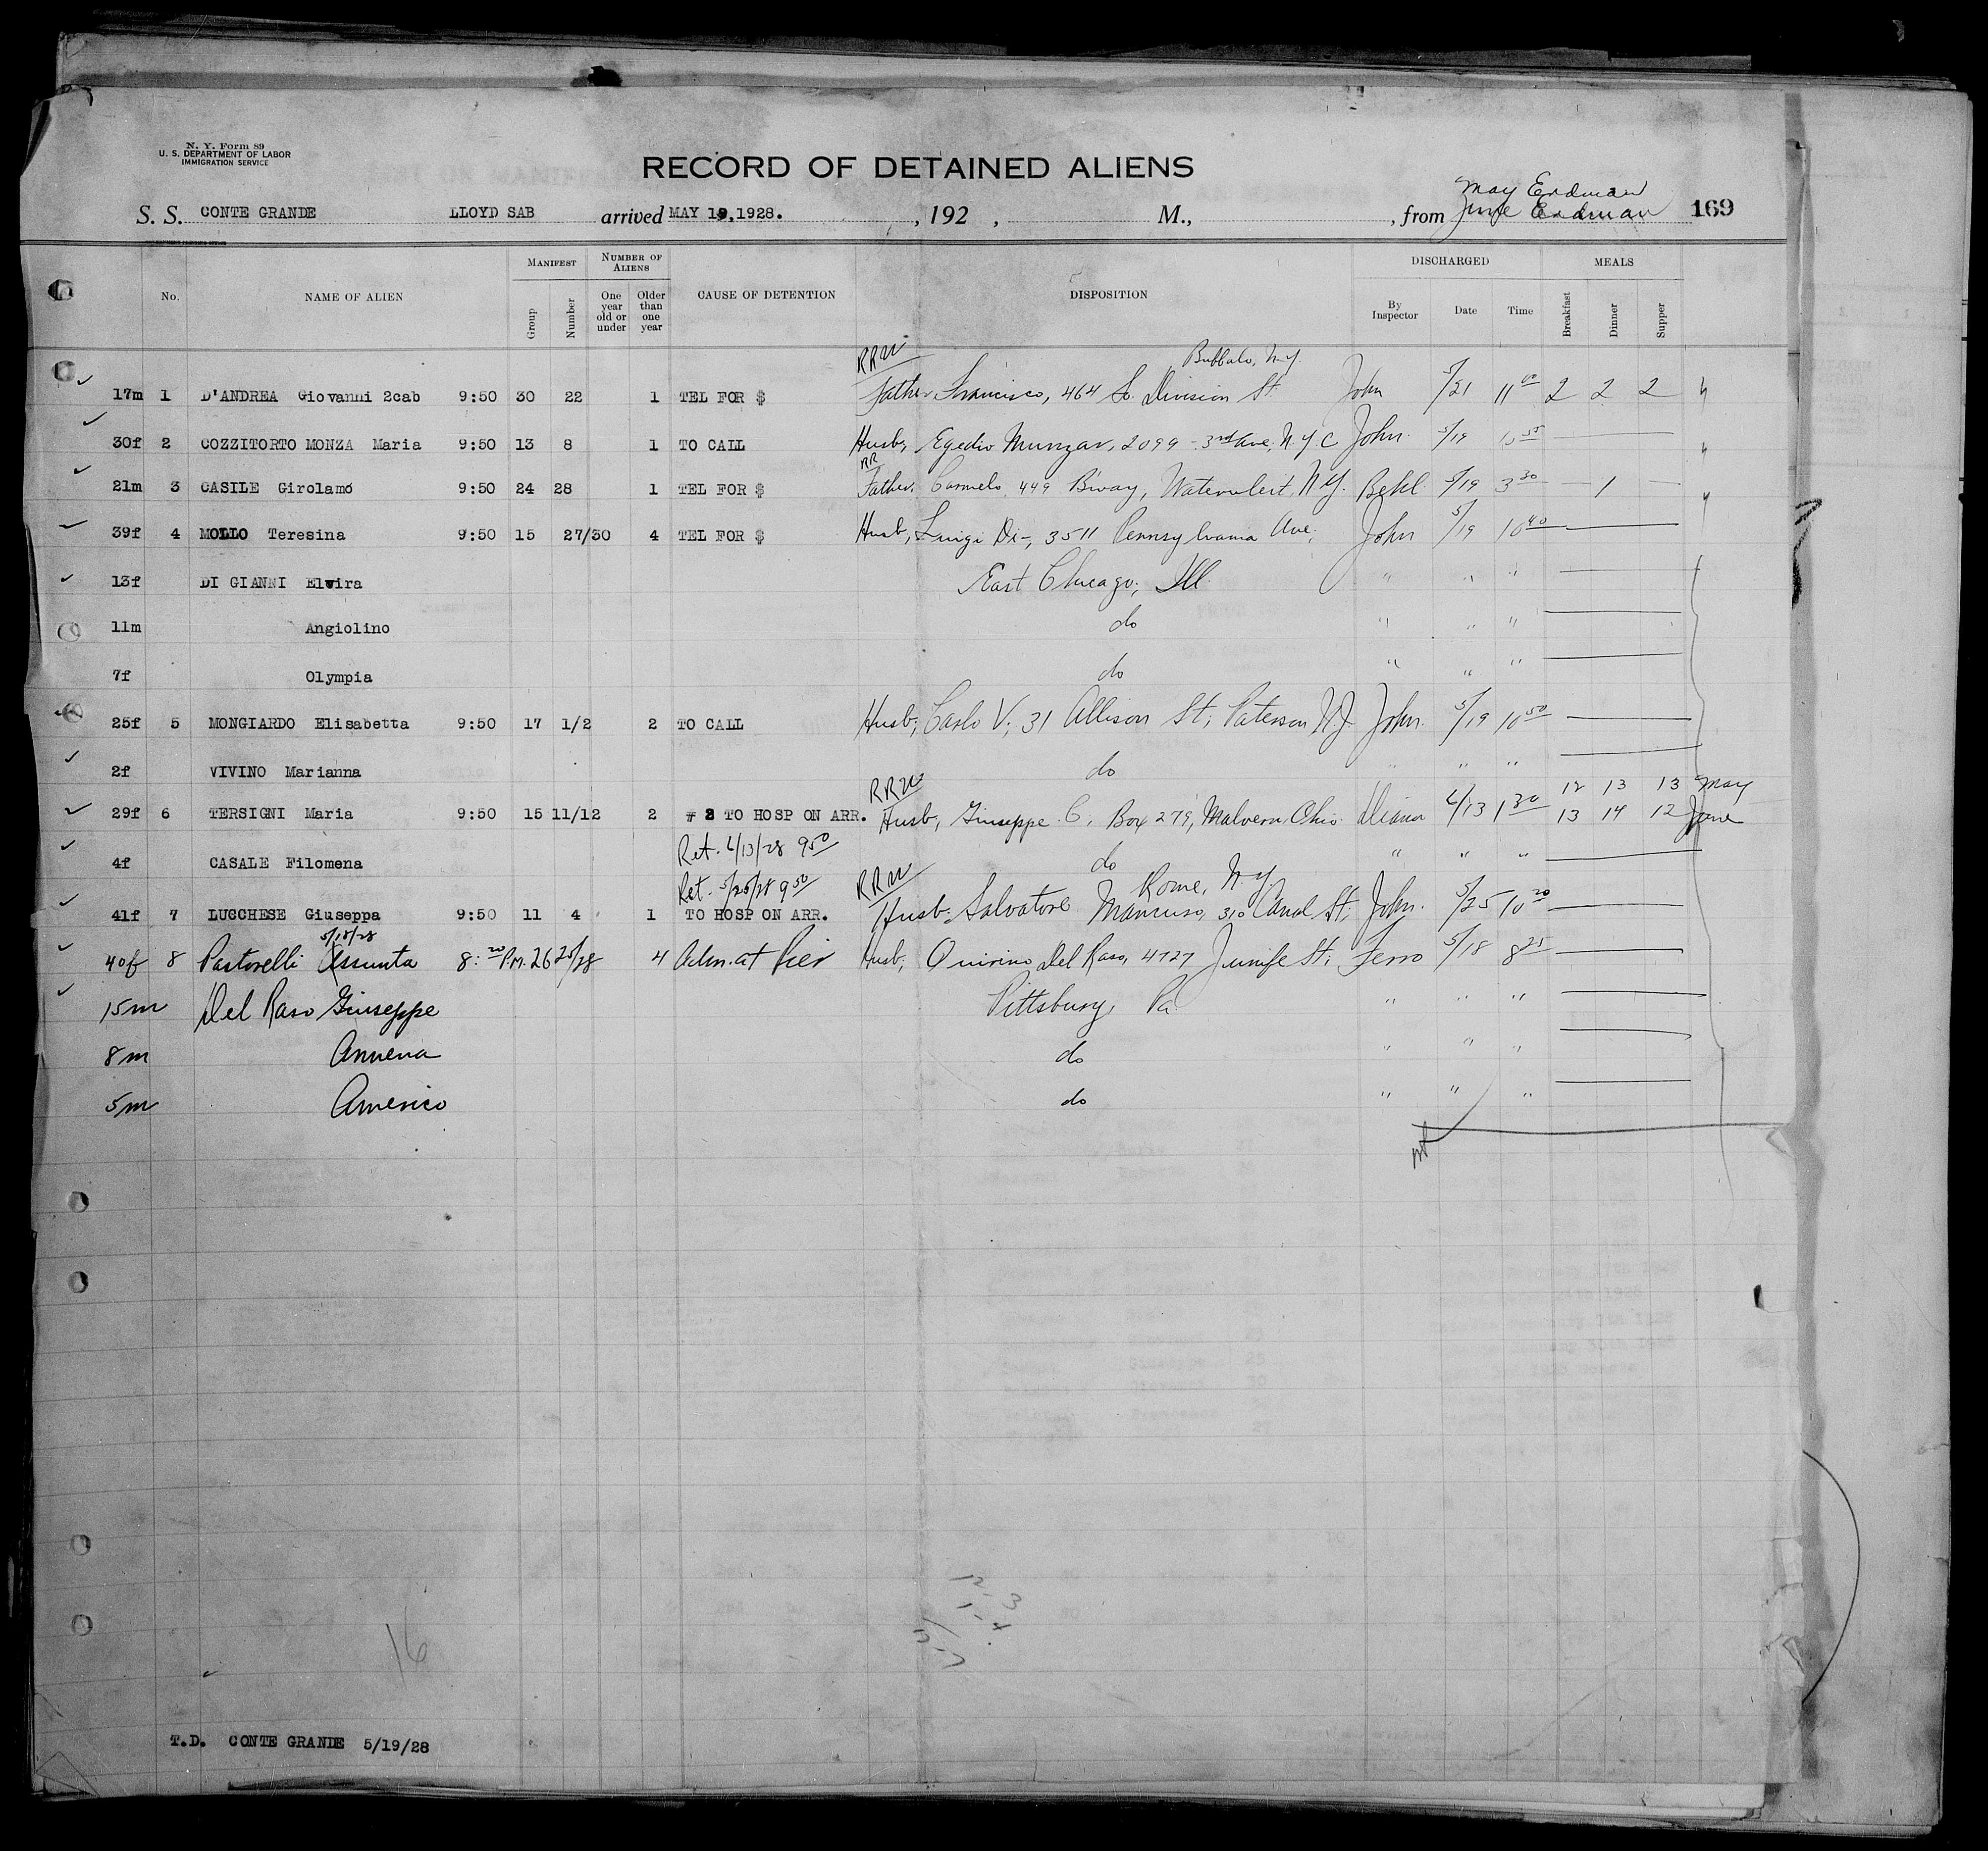 N. Y. Form 89
U. S. DEPARTMENT OF LABOR
IMMIGRATION SERVICE
RECORD OF DETAINED ALIENS
May Erdman
S. S. CONTE GRANDE LLOYD SAB arrived MAY 19, 1928. , 192 , M., , from June Erdman 169
No. NAME OF ALIEN MANIFEST Group Number NUMBER OF ALIENS One year old or under Older than one year CAUSE OF DETENTION DISPOSITION DISCHARGED By Inspector Date Time MEALS Breakfast Dinner Supper
RRW Buffalo, N.Y.
17m 1 D'ANDREA Giovanni 2cab 9:50 30 22 1 TEL FOR $ Father Francisco, 464 So. Division St. John 5/21 11 00 2 2 2
30f 2 COZZITORTO MONZA Maria 9:50 13 8 1 TO CALL Husb, Egedio Munzar, 2099 - 3rd Ave, N.Y.C John 5/19 10 55
RR
21m 3 CASILE Girolamo 9:50 24 28 1 TEL FOR $ Father, Carmelo, 449 Bway, Watervliet, N.Y. Behl 5/19 3 30 1
39f 4 MOLLO Teresina 9:50 15 27/30 4 TEL FOR $ Husb, Luigi Di-, 3511 Pennsylvania Ave, John 5/19 10 40
13f DI GIANNI Elvira East Chicago, Ill. " " "
11m Angiolino do " " "
7f Olympia do " " "
25f 5 MONGIARDO Elisabetta 9:50 17 1/2 2 TO CALL Husb, Carlo V, 31 Allison St, Paterson N.J. John. 5/19 10 50
2f VIVINO Marianna do " " "
RRW 12 13 13 May
29f 6 TERSIGNI Maria 9:50 15 11/12 2 # 2 TO HOSP ON ARR. Husb, Giuseppe C, Box 279, Malvern, Ohio Diana 6/13 1 30 13 14 12 June
Ret. 6/13/28 9 50
4f CASALE Filomena do " " "
Ret. 5/25/28 9 50 RRW Rome, N.Y.
41f 7 LUCCHESE Giuseppa 9:50 11 4 1 TO HOSP ON ARR. Husb. Salvatore Mancuso, 310 Canal St, John. 5/25 10 20
5/18/28
40f 8 Pastorelli Assunta 8:20 P.M. 26 25/28 4 Adm. at Pier Husb, Quirino Del Raso, 4727 Junife St, Ferro 5/18 8 25
15m Del Raso Giuseppe Pittsburg, Pa " " "
8m Annena do " " "
5m Americo do " " "
16
T.D. CONTE GRANDE 5/19/28